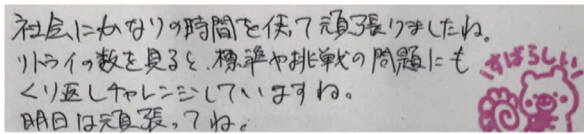 社会にかなりの時間を使って頑張りましたね。
リトライの数を見ると、標準や挑戦の問題にも
くり返しチャレンジしていますね。
明日は頑張ってね。
すばらしい